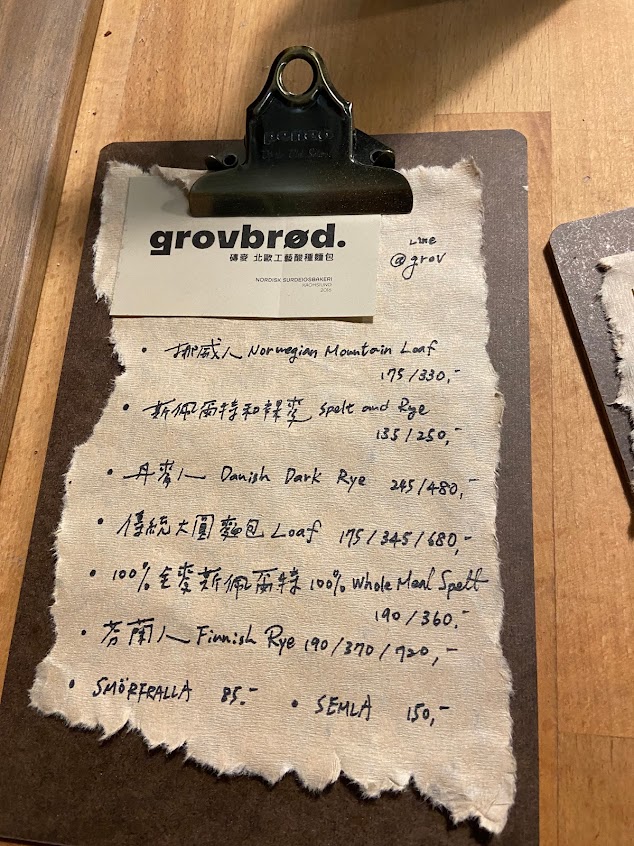 grovbrød.
磚麥 北歐工藝酸種麵包
NORDISK SURDEIGSBAKERI
KAOHSIUNG
2016
Line
@grov
• 挪威人 Norwegian Mountain Loaf
175/330,-
• 斯佩爾特和裸麥 Spelt and Rye
135/250,-
• 丹麥人 Danish Dark Rye 245/480,-
• 傳統大圓麵包 Loaf 175/345/680,-
• 100% 全麥斯佩爾特 100% Whole Meal Spelt
190/360,-
• 芬蘭人 Finnish Rye 190/370/720,-
• SMÖRFRALLA 85.- • SEMLA 150,-